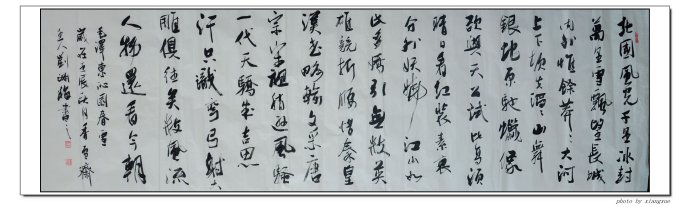 北国風光千里冰封
萬里雪飄望長城
内外惟餘莽莽大河
上下頓失滔滔山舞
銀蛇原馳蠟像
欲與天公試比高須
晴日看紅裝素裹
分外妖嬈江山如
此多嬌引無數英
雄競折腰惜秦皇
漢武略輸文采唐
宗宋祖稍遜風騷
一代天驕成吉思
汗只識彎弓射大
雕俱往矣數風流
人物還看今朝
毛澤東沁園春雪
歲在壬辰秋月香雪齋
主人劉
書
photo by xiangxue